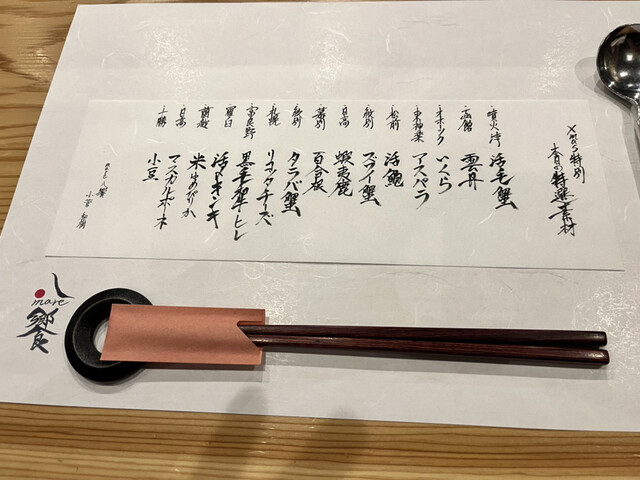 特別
の特選素材
噴火湾 活毛蟹
函館 雲丹
オホーツク いくら
東神楽 アスパラ
松前 活鮑
紋別 ズワイ蟹
日高 蝦夷鹿
百合根
紋別 タラバ蟹
札幌 リコッタチーズ
富良野 黒毛和牛ヒレ
羅臼 活キンキ
蘭越 米ゆめぴりか
日高 マスカルポーネ
十勝 小豆
mare
饗